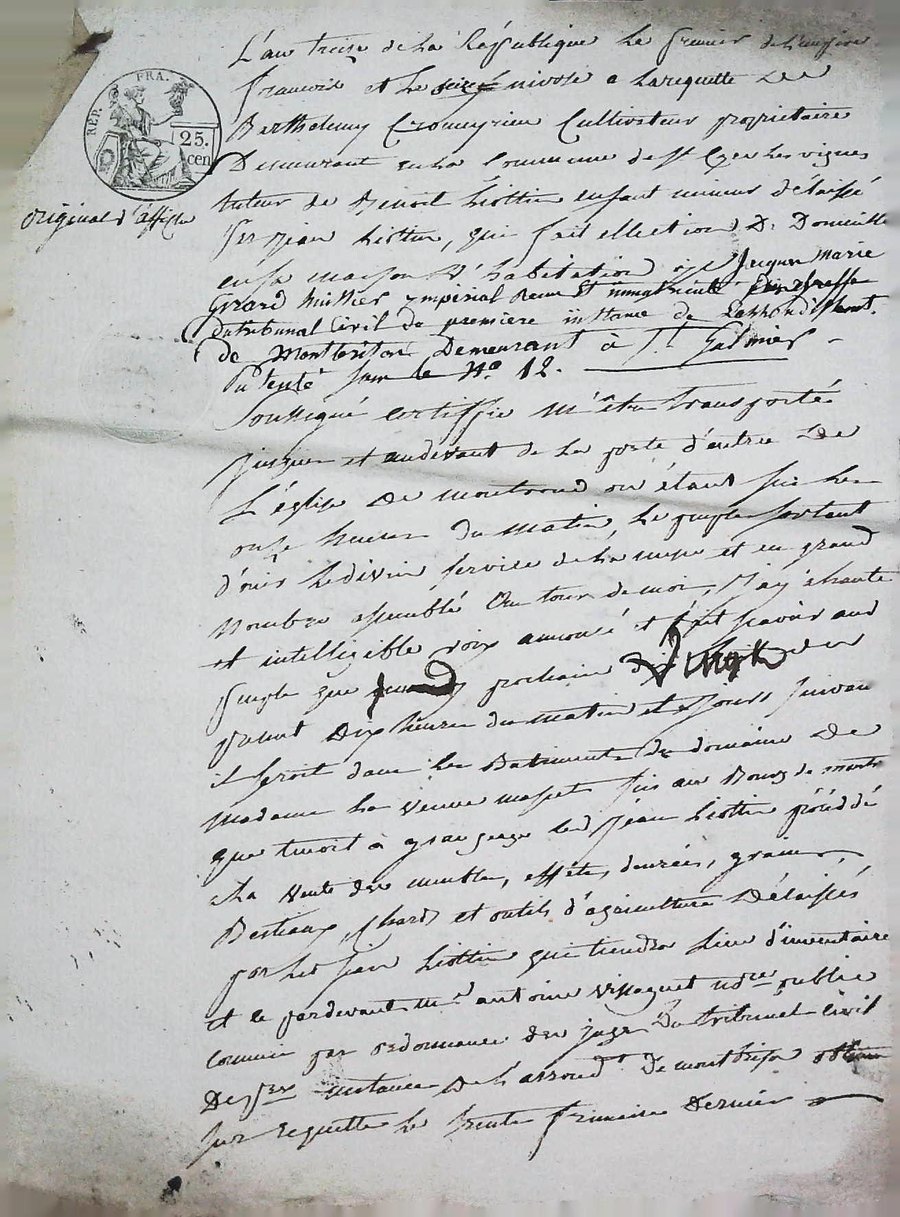 REP. FRA.
25.
cen
original d'affiche
L'an treize de la République le premier de l'empire
francois et le seize nivose a la requette de
Barthelemy Cromeyrieu Cultivateur propriétaire
Demeurant en la Commune de St Cyr les vignes
tuteur de Benoit Liottin enfant mineur délaissé
par jean Liottin, qui fait ellection De Domicille
en sa maison d'habitation je Jacques Marie
Girard huissier ymperial Recu Et immatriculé au greffe
du tribunal Civil de première instance de Larrondismt.
de Montbrison Demeurant à St. Galmier
Patenté sous le No. 12.
Soussigné certiffie m'être transporté
jusques et audevant de la porte d'entrée de
L'église De montrond où étant sur les
onze heures du matin, le peuple sortant
d'ouir le divin service de la messe et en grand
nombre assemblé au tour de moi, j'ay à haute
et intelligible voix annoncé et fait scavoir aud
peuple que prochain vingt du
présent dix heures du matin et jours suivans
il seroit dans les Batiments du domaine de
madame la veuve sis au Bourg de
que tenoit à grangeage led jean Liottin procédé
a la vente des meubles, effets, denrées, grains,
Bestiaux, chards et outils d'agriculture Délaissés
par led jean Liottin qui tiendra lieu d'inventaire
et ce pardevant me antoine Vissaguet nore public
commis par ordonnance des juges Du tribunal civil
De pere instance De Larrondt De montbrison
sur requette le trente frimaire Dernier